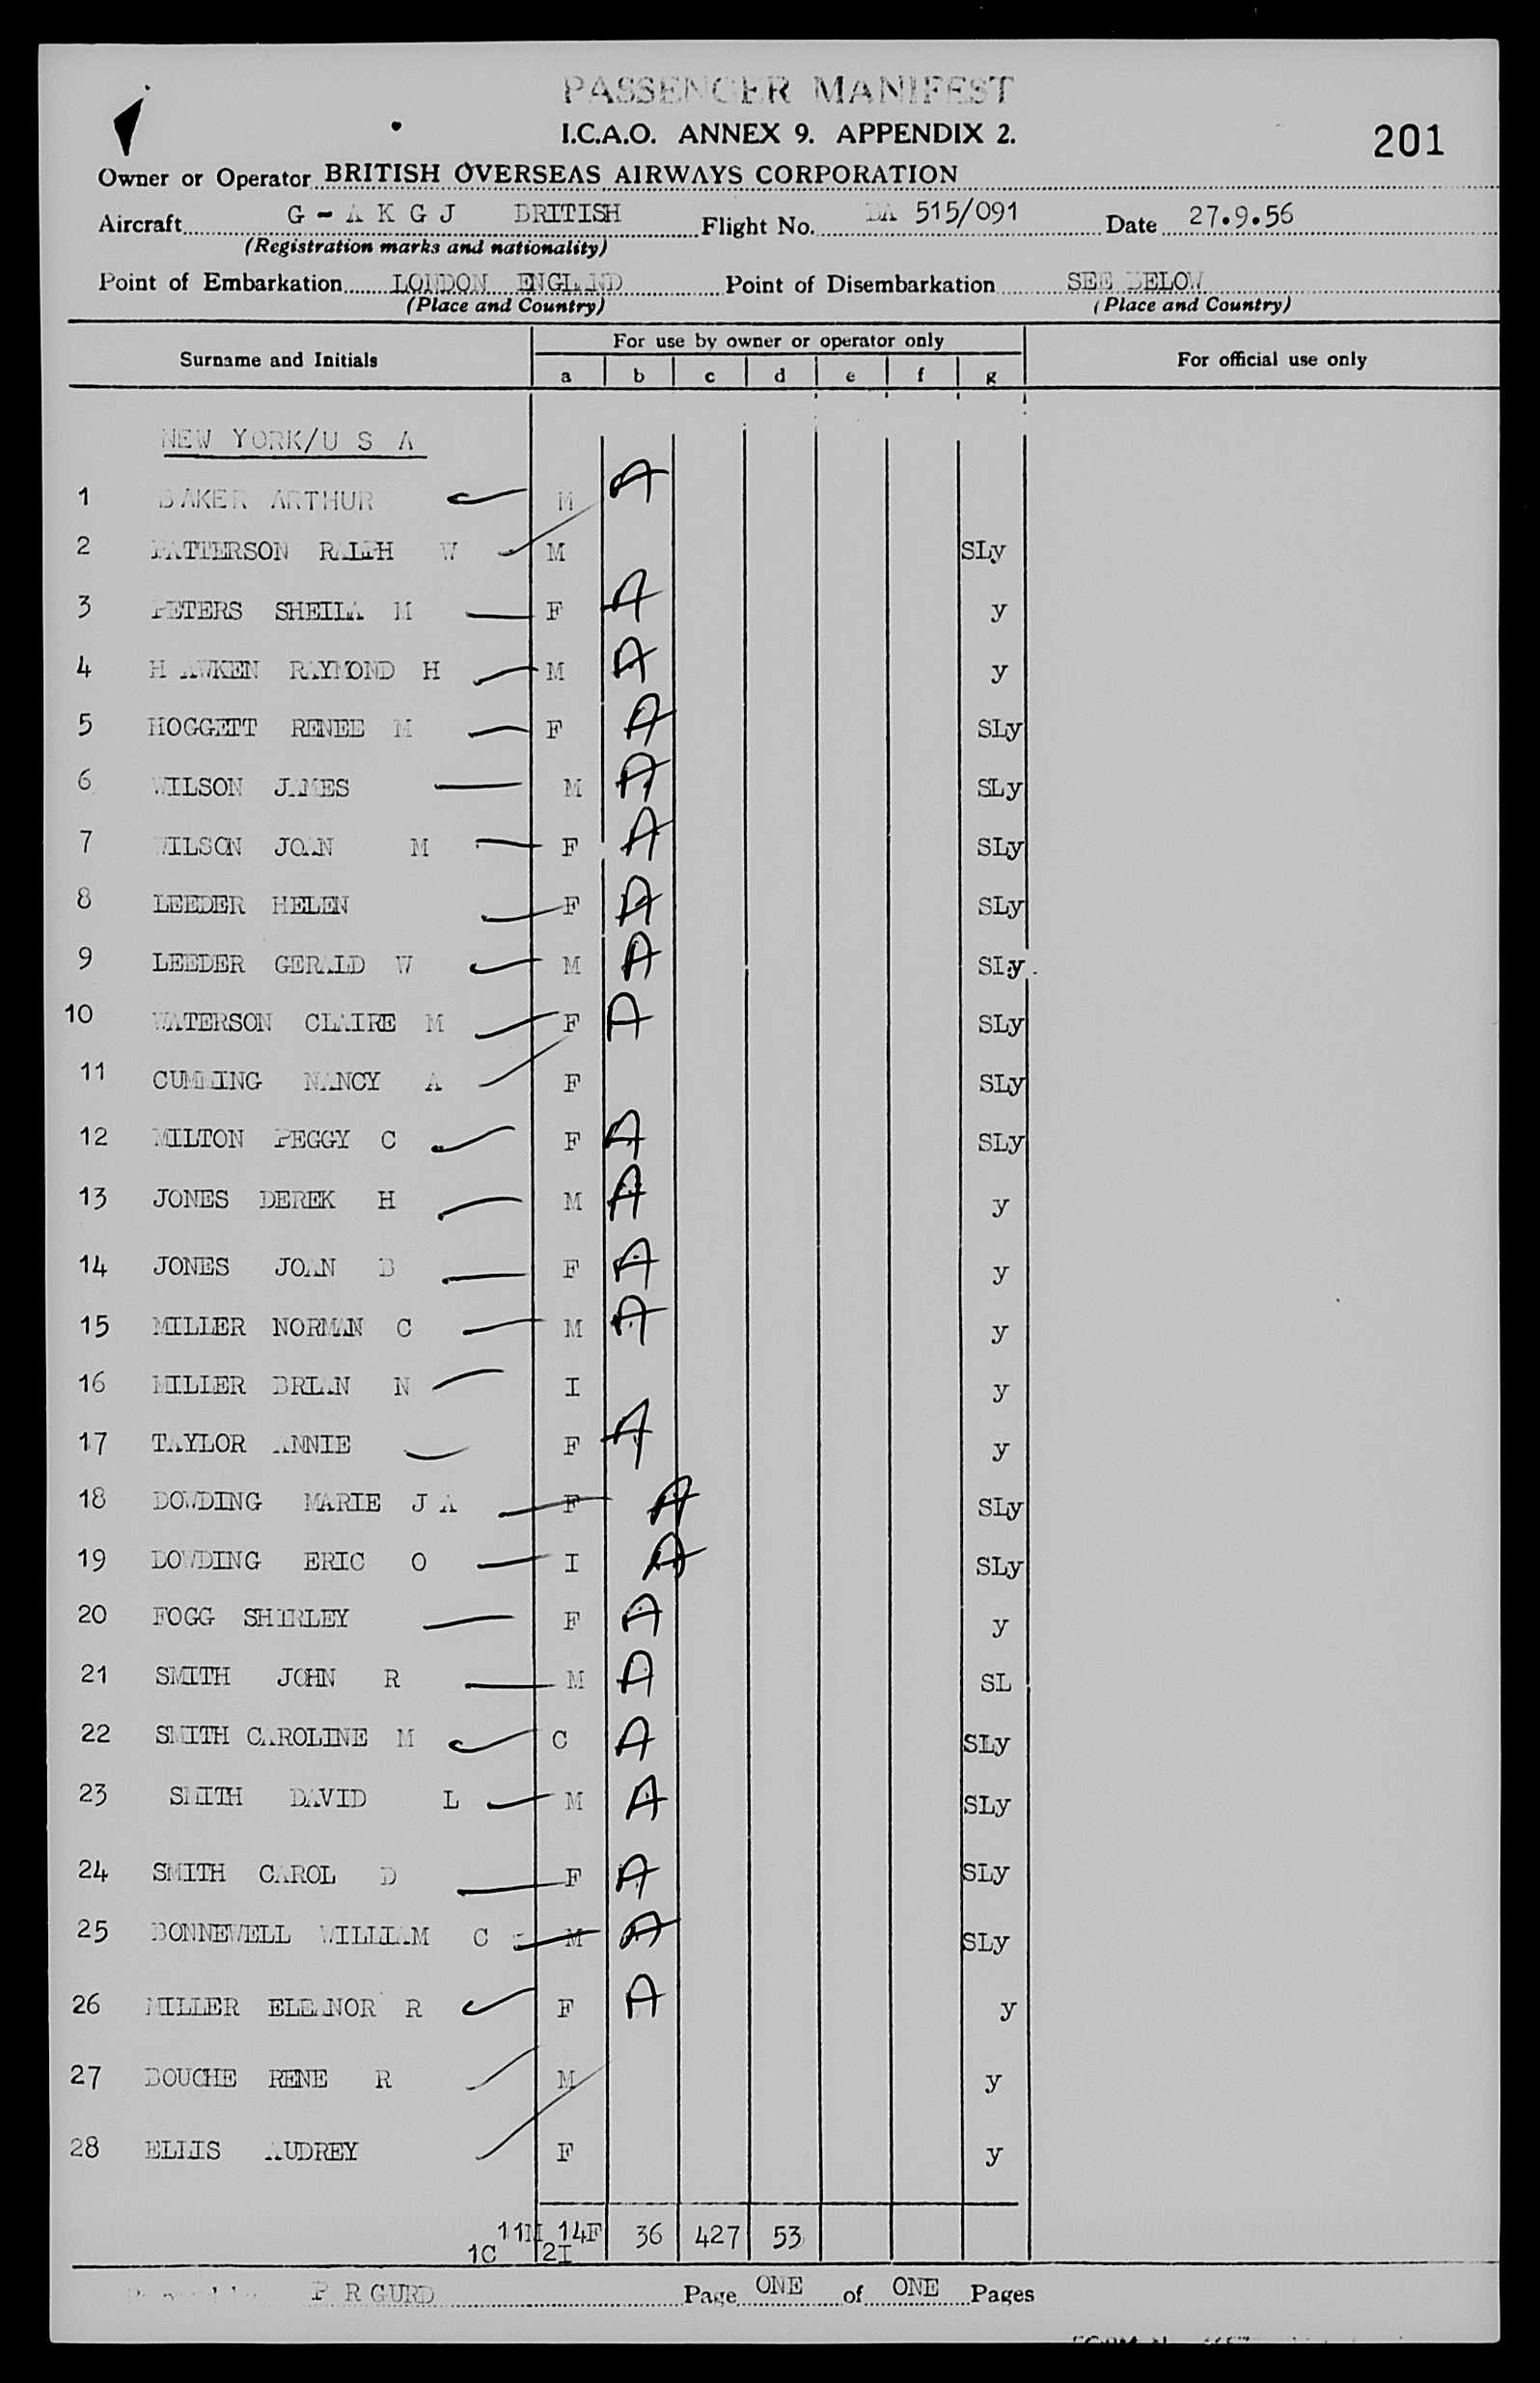 PASSENGER MANIFEST
I.C.A.O. ANNEX 9. APPENDIX 2.
201
Owner or Operator BRITISH OVERSEAS AIRWAYS CORPORATION
Aircraft G - A K G J BRITISH Flight No. BA 515/091 Date 27.9.56
(Registration marks and nationality)
Point of Embarkation LONDON ENGLAND Point of Disembarkation SEE BELOW
(Place and Country) (Place and Country)
Surname and Initials For use by owner or operator only For official use only
a b c d e f g
NEW YORK/U S A
1 BAKER ARTHUR M A
2 PATTERSON RALPH W M SLy
3 PETERS SHEILA M F A y
4 H AWKEN RAYMOND H M A y
5 HOGGETT RENEE M F A SLy
6 WILSON JAMES M A SLy
7 WILSON JOAN M F A SLy
8 LEEDER HELEN F A SLy
9 LEEDER GERALD W M A SLy
10 WATERSON CLAIRE M F A SLy
11 CUMMING NANCY A F SLy
12 MILTON PEGGY C F A SLy
13 JONES DEREK H M A y
14 JONES JOAN B F A y
15 MILLER NORMAN C M A y
16 MILLER BRIAN N I y
17 TAYLOR ANNIE F A y
18 DOWDING MARIE J A F A SLy
19 DOWDING ERIC O I A SLy
20 FOGG SHIRLEY F A y
21 SMITH JOHN R M A SL
22 SMITH CAROLINE M C A SLy
23 SMITH DAVID L M A SLy
24 SMITH CAROL D F A SLy
25 BONNEWELL WILLIAM C M A SLy
26 MILLER ELEANOR R F A y
27 BOUCHE RENE R M y
28 ELLIS AUDREY F y
11M 14F 36 427 53
1C 2I
P R GURD Page ONE of ONE Pages